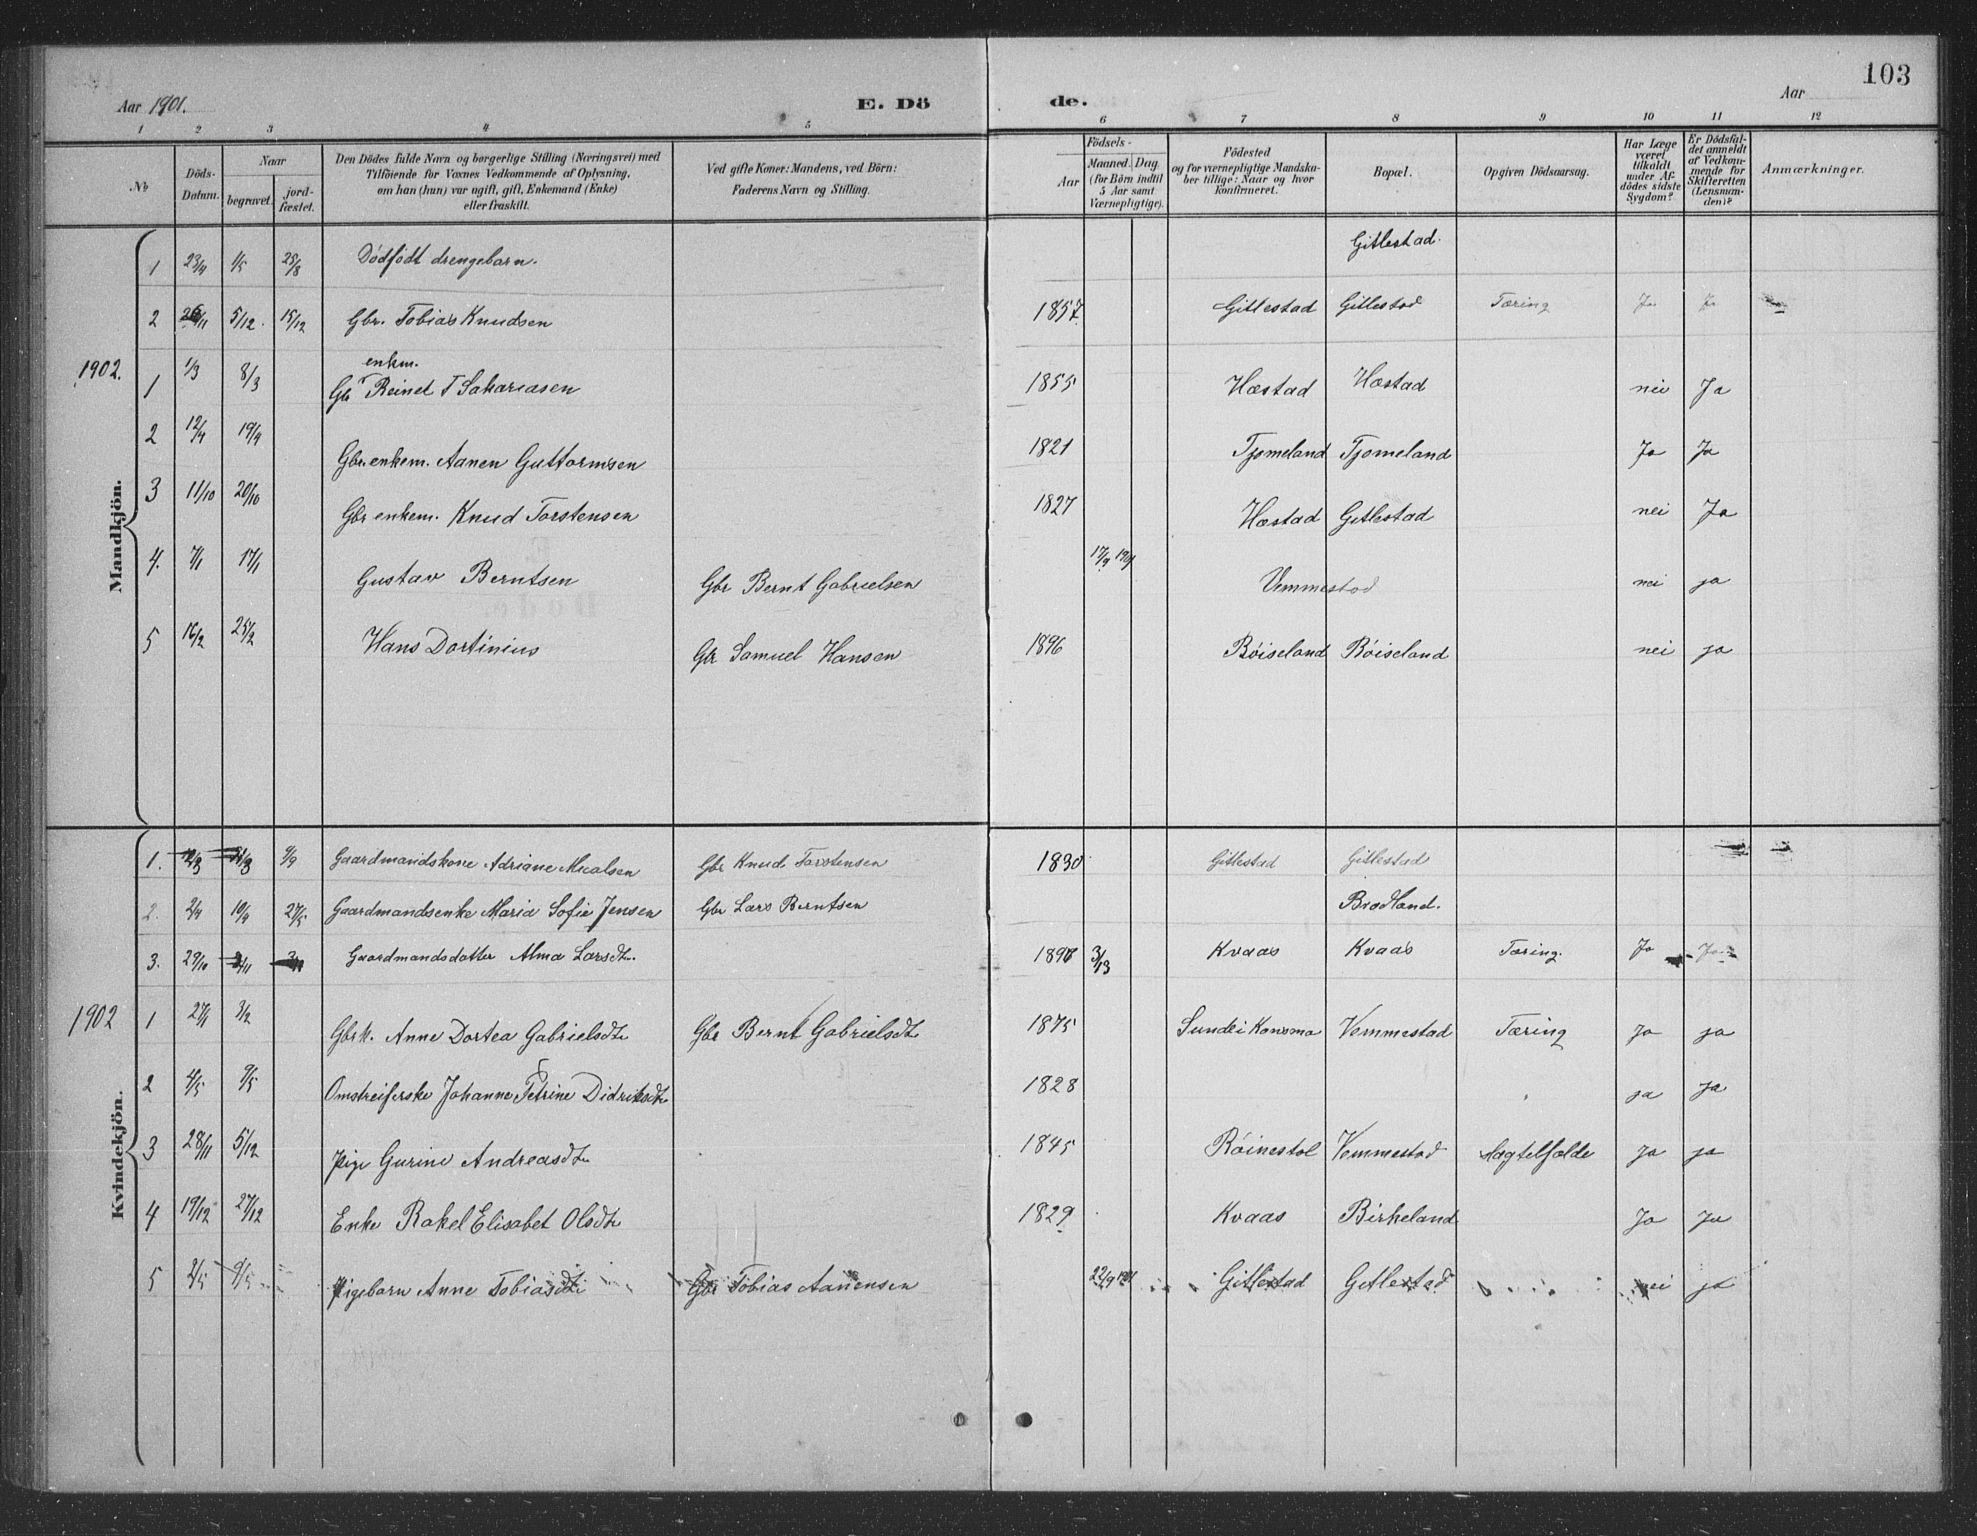 103
Aar 1901. E. Dö de. Aar
1 2 3 4 5 6 7 8 9 10 11 12
No Döds-Datum. Naar begravet. jordfæstet. Den Dödes fulde Navn og borgerlige Stilling (Næringsvei) med Tilföiende for Voxnes Vedkommende af Oplysning, om han (hun) var ugift, gift, Enkemand (Enke) eller fraskilt. Ved gifte Koner: Mandens, ved Börn: Faderens Navn og Stilling. Födsels- Aar Maaned. Dag. (for Börn indtil 5 Aar samt Værnepligtige). Födested og for værnepligtige Mandskaber tillige: Naar og hvor konfirmeret. Bopæl. Opgiven Dödsaarsag. Har Læge været tilkaldt under Afdödes sidste Sygdom? Er Dödsfaldet anmeldt af Vedkommende for Skifteretten (Lensmanden)? Anmærkninger.
Mandkjön.
1 23/4 1/5 25/8 Dödfödt drengebarn. Gitlestad.
2 26/11 5/12. 15/12 Gbr. Tobias Knudsen 1857 Gitlestad Gitlestad Tæring Ja Ja
1902.
1 1/3 8/3 Gb enkm. Reinet T Sakariasen 1855 Hæstad Hæstad nei Ja
2 12/4 19/4 Gbr. enkem. Aanen Guttormsen 1821 Tjomeland Tjomeland Ja Ja
3 11/10 20/10 Gbr enkem. Knud Torstensen 1827 Hæstad Gitlestad nei Ja
4. 7/1 17/1 Gustav Berntsen Gbr Bernt Gabrielsen 17/9 1901 Vemmestad nei ja
5 16/2 25/2 Hans Dortinius Gbr Samuel Hansen 1896 Röiseland Röiseland nei ja
Kvindekjön.
1. 9/9 Gaardmandskone Adriane Micalsen Gbr Knud Torstensen 1830 Gitlestad Gitlestad
2. 2/4 10/4 27/5 Gaardmandsenke Maria Sofie Jensen Gbr Lars Berntsen Brodland.
3. 29/10 Gaardmandsdatter Alma Larsdt. 3/13 Kvaas Kvaas Tæring. Ja Ja
1902
1 27/1 3/2 Gbrk. Anne Dortea Gabrielsdt Gbr Bernt Gabrielsdt 1875 Sunde i Konsmo Vemmestad Tæring Ja ja
2 4/5 9/5 Omstreiferske Johanne Petrine Didriksdt 1828 ja ja
3 28/11 5/12 Pige Gurine Andreasdt 1845 Röinestol Vemmestad Slagtelfælde Ja ja
4 19/12 27/12 Enke Rakel Elisabet Olsdt 1829 Kvaas Birkeland Ja Ja
5 2/5 9/5 Pigebarn Anne Tobiasdt Gbr Tobias Aanensen 22/9 1901 Gitlestad Gitlestad nei ja